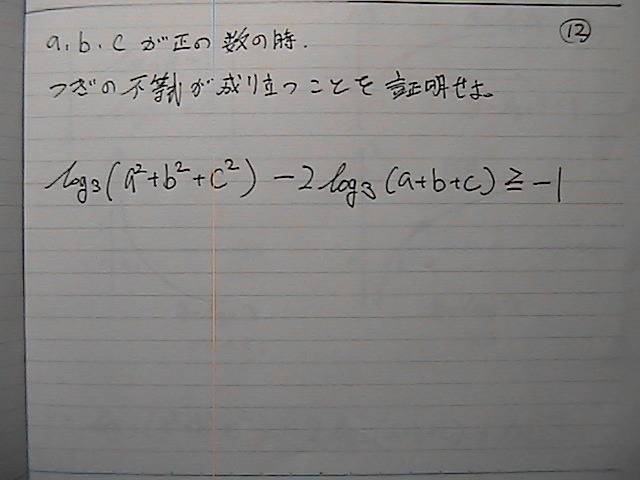 a、b、c が正の数の時. ⑫
つぎの不等式が成り立つことを証明せよ。
log₃(a²+b²+c²) -2log₃(a+b+c) ≧ -1